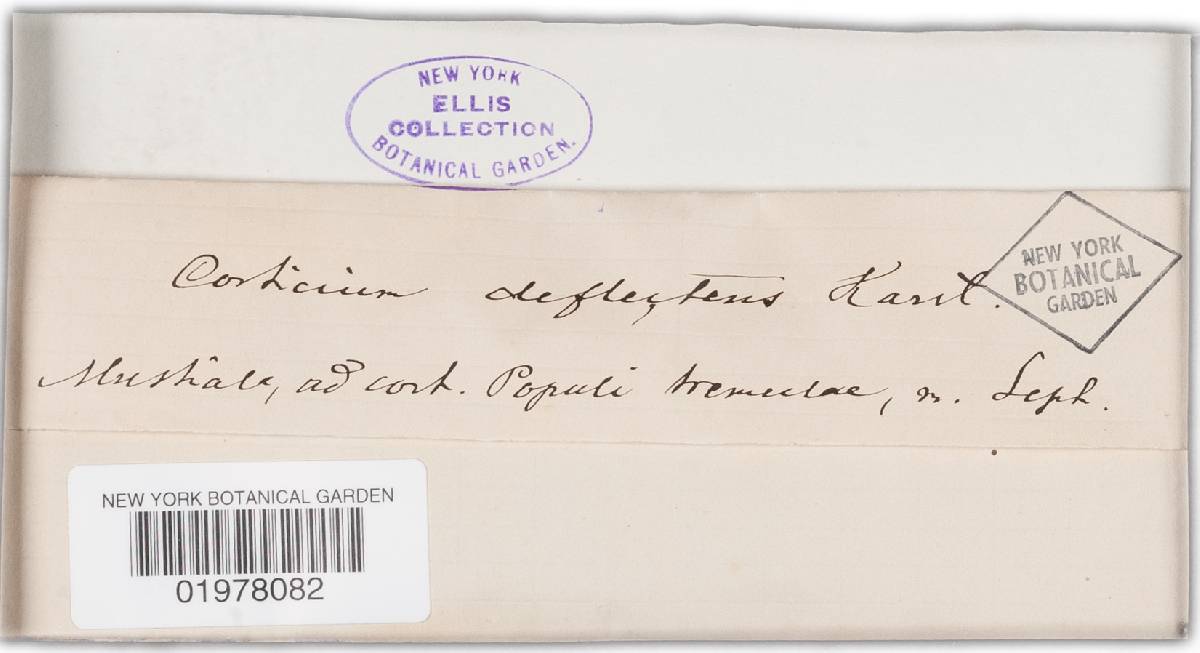 NEW YORK
ELLIS
COLLECTION
BOTANICAL GARDEN.
NEW YORK
BOTANICAL
GARDEN
Corticium deflectens Karst.
Mustiala, ad cort. Populi tremulae, m. Sept.
NEW YORK BOTANICAL GARDEN
01978082